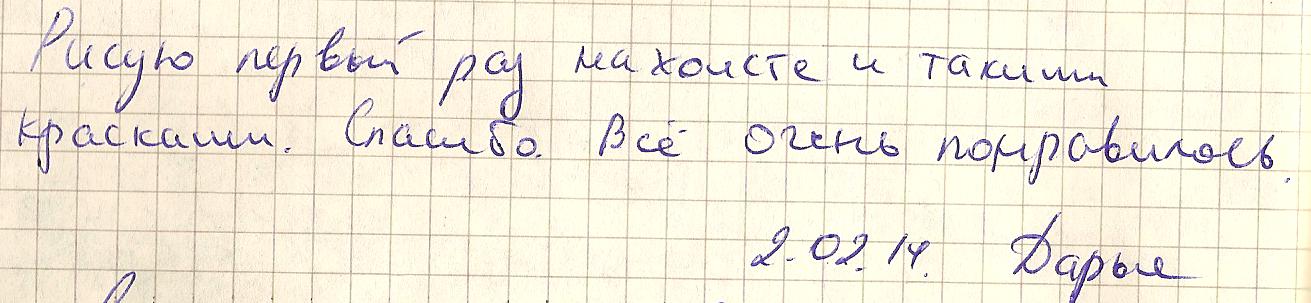 Рисую первый раз на холсте и такими
красками. Спасибо. Всё очень понравилось.
2.02.14. Дарья